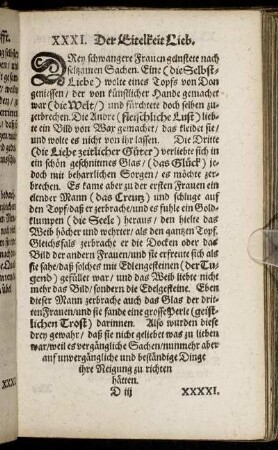 XXXI. Der Eitelkeit Lieb.
DRey schwangere Frauen gelüstete nach
seltzamen Sachen. Eine (die Selbst-
Liebe) wolte eines Topfs von Don
geniessen / der von künstlicher Hande gemachet
war (die Welt) und fürchtete doch selben zu-
zerbrechen. Die Andre (fleischliche Lust) lieb-
te ein Bild von Wax gemachet / das kleidet sie /
und wolte es nicht von ihr lassen. Die Dritte
(Die Liebe zeitlicher Güter) verliebte sich in
ein schön geschnittnes Glas / (das Glück) je-
doch mit beharrlichen Sorgen / es möchte zer-
brechen. Es kame aber zu der ersten Frauen ein
elender Mann (das Creutz) und schluge auf
den Topf / daß er zerbrache / und es fuhre ein Gold-
klumpen (die Seele) heraus / den hielte das
Weib höher und wehrter / als den gantzen Topf.
Gleichsfals zerbrache er die Docken oder das
Bild der andern Frauen / und sie erfreute sich als
sie sahe / daß solches mit Edlengesteinen (der Tu-
gend) gefüllet war / und das Weib liebte nicht
mehr das Bild / sondern die Edelgesteine. Eben
dieser Mann zerbrache auch das Glas der drit-
ten Frauen / und sie fande eine grosse Perle (geist-
lichen Trost) darinnen. Also wurden diese
drey gewahr / daß sie nicht geliebet was zu lieben
war / weil es vergängliche Sachen / nunmehr aber
auf unvergängliche und beständige Dinge
ihre Neigung zu richten
hätten.
D iij XXXXI.